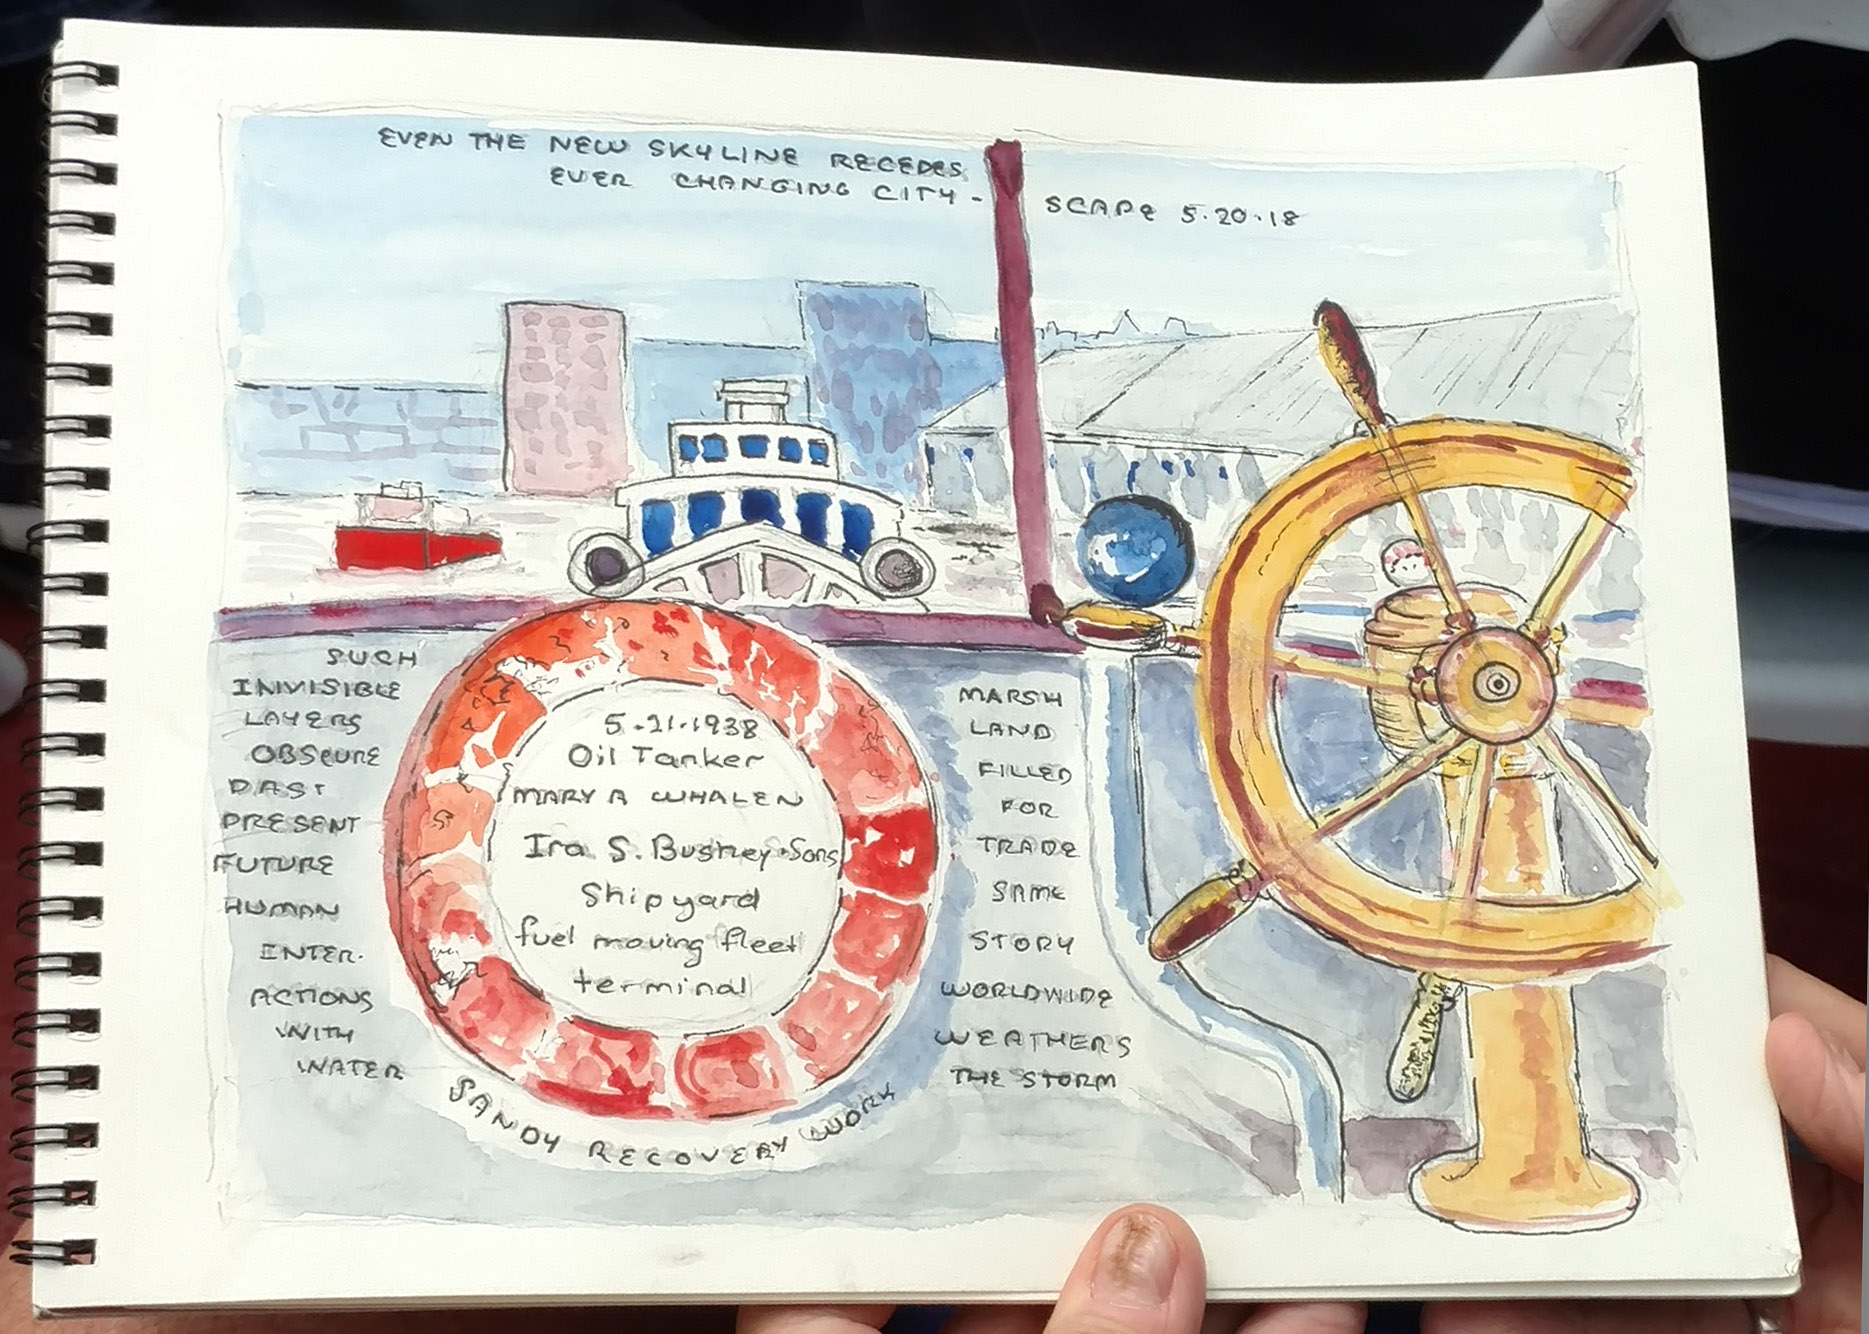 EVEN THE NEW SKYLINE RECEDES
EVER CHANGING CITY - SCAPE 5.20.18
SUCH
INVISIBLE
LAYERS
OBSCURE
PAST
PRESENT
FUTURE
HUMAN
INTER-
ACTIONS
WITH
WATER
5.21.1938
Oil Tanker
MARY A WHALEN
Ira S. Bushey & Sons
Shipyard
fuel moving fleet
terminal
SANDY RECOVERY WORK
MARSH
LAND
FILLED
FOR
TRADE
SAME
STORY
WORLDWIDE
WEATHERS
THE STORM